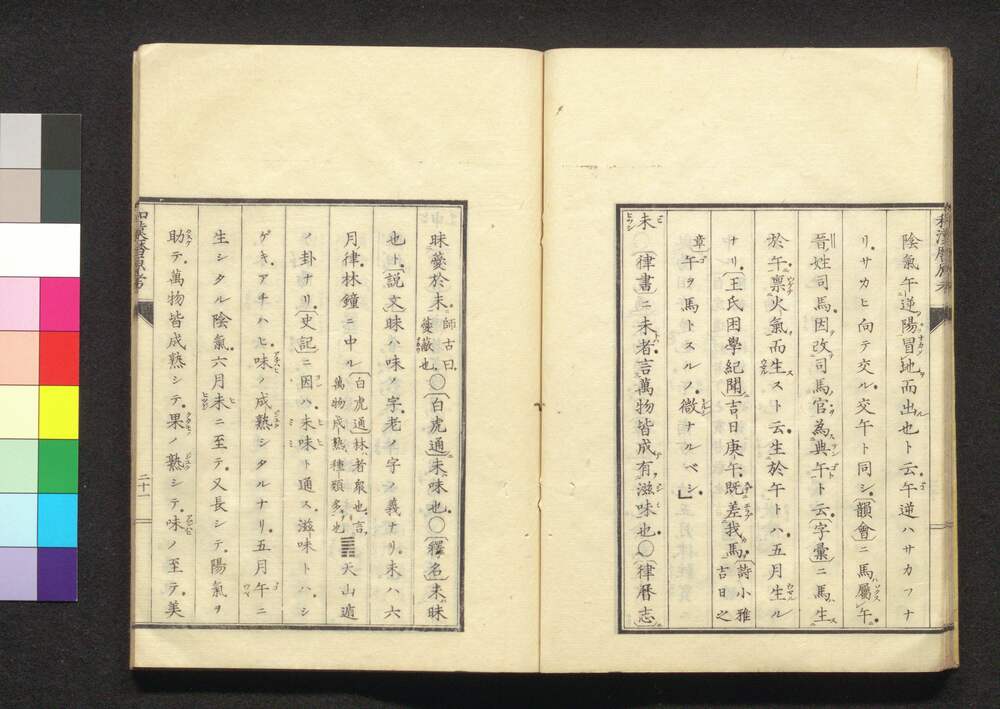 陰氣午逆陽冒地而出也ト云午逆ハサカフナ
リサカヒ向テ交ル交午ト同シ韻會ニ馬屬午
晉姓司馬因改司馬官為典午ト云字彙ニ馬生
於午稟火氣而生スト云生於午トハ五月生ル
ナリ王氏困學紀聞吉日庚午既差我馬詩小雅吉日之
章午ヲ馬トスルノ徴ナルベシ
未律書ニ未者言萬物皆成有滋味也〇律暦志
昧薆於未師古曰薆蔽也〇白虎通未味也〇釋名未昧
也ト説文昧ハ味ノ字老ノ字ノ義ナリ未ハ六
月律林鐘ニ中ル白虎通林者衆也言萬物成熟種類多也䷠天山遯
ノ卦ナリ史記ニ因ハ未味ト通ス滋味トハシ
ゲキアチハヒ味ノ成熟シタルナリ五月午ニ
生シタル陰氣六月未ニ至テ又長シテ陽氣ヲ
助テ萬物皆成熟シテ果ノ熟シテ味ノ至テ美
二十一